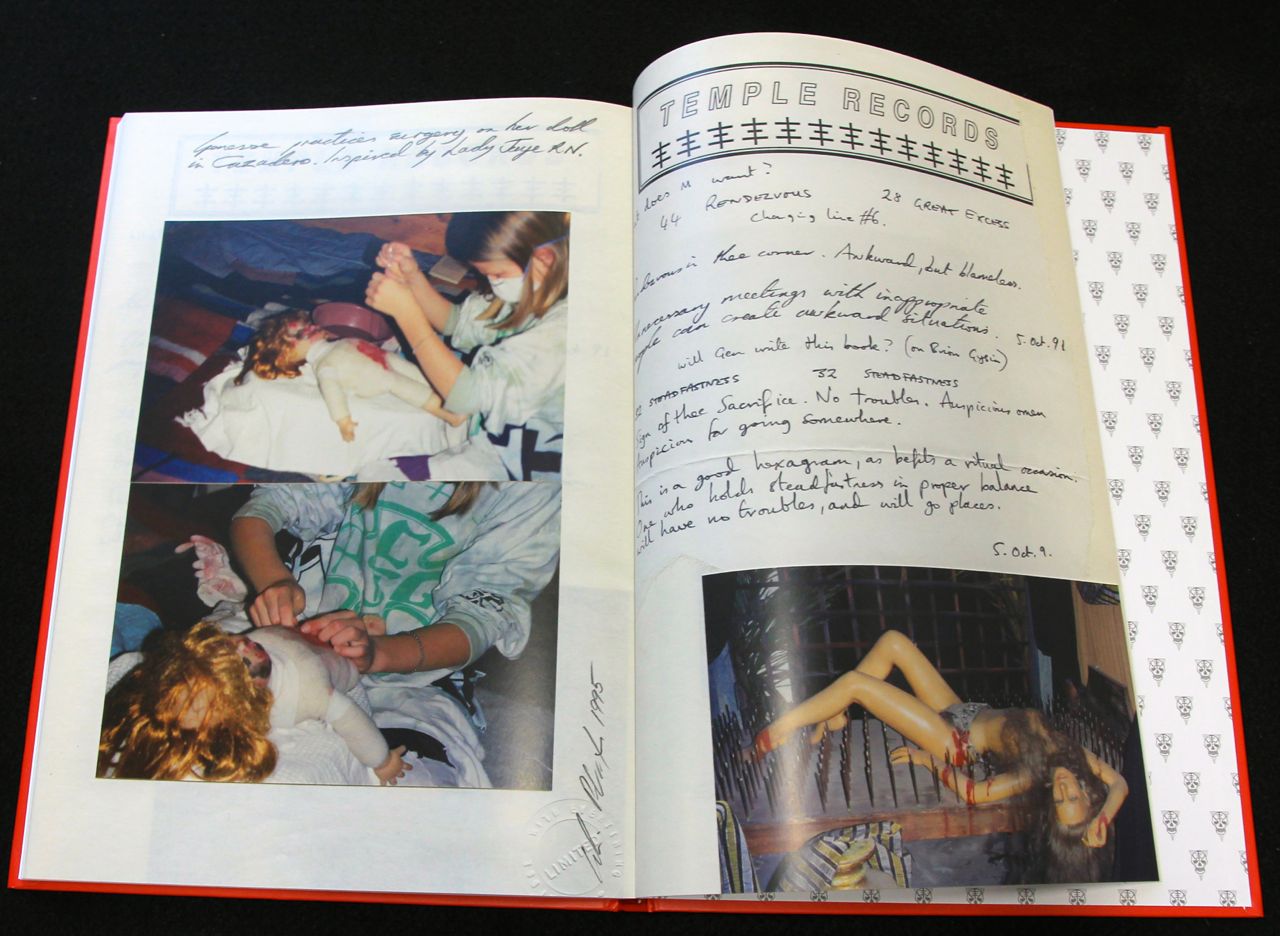 practices surgery on her doll
in Cazadero. Inspired by Lady Jaye R.N.
1995
LIMITED
TEMPLE RECORDS
does M want?
44 RENDEZVOUS 28 GREAT EXCESS
Changing line #6.
in thee corner. Awkward, but blameless.
meetings with inappropriate
can create awkward situations. 5. Oct. 91
will Gen write this book? (on Brion Gysin)
STEADFASTNESS 32 STEADFASTNESS
Sign of thee Sacrifice. No troubles. Auspicious omen
Auspicion for going somewhere.
This is a good hexagram, as befits a ritual occasion.
One who holds steadfastness in proper balance
will have no troubles, and will go places.
5. Oct. 9.